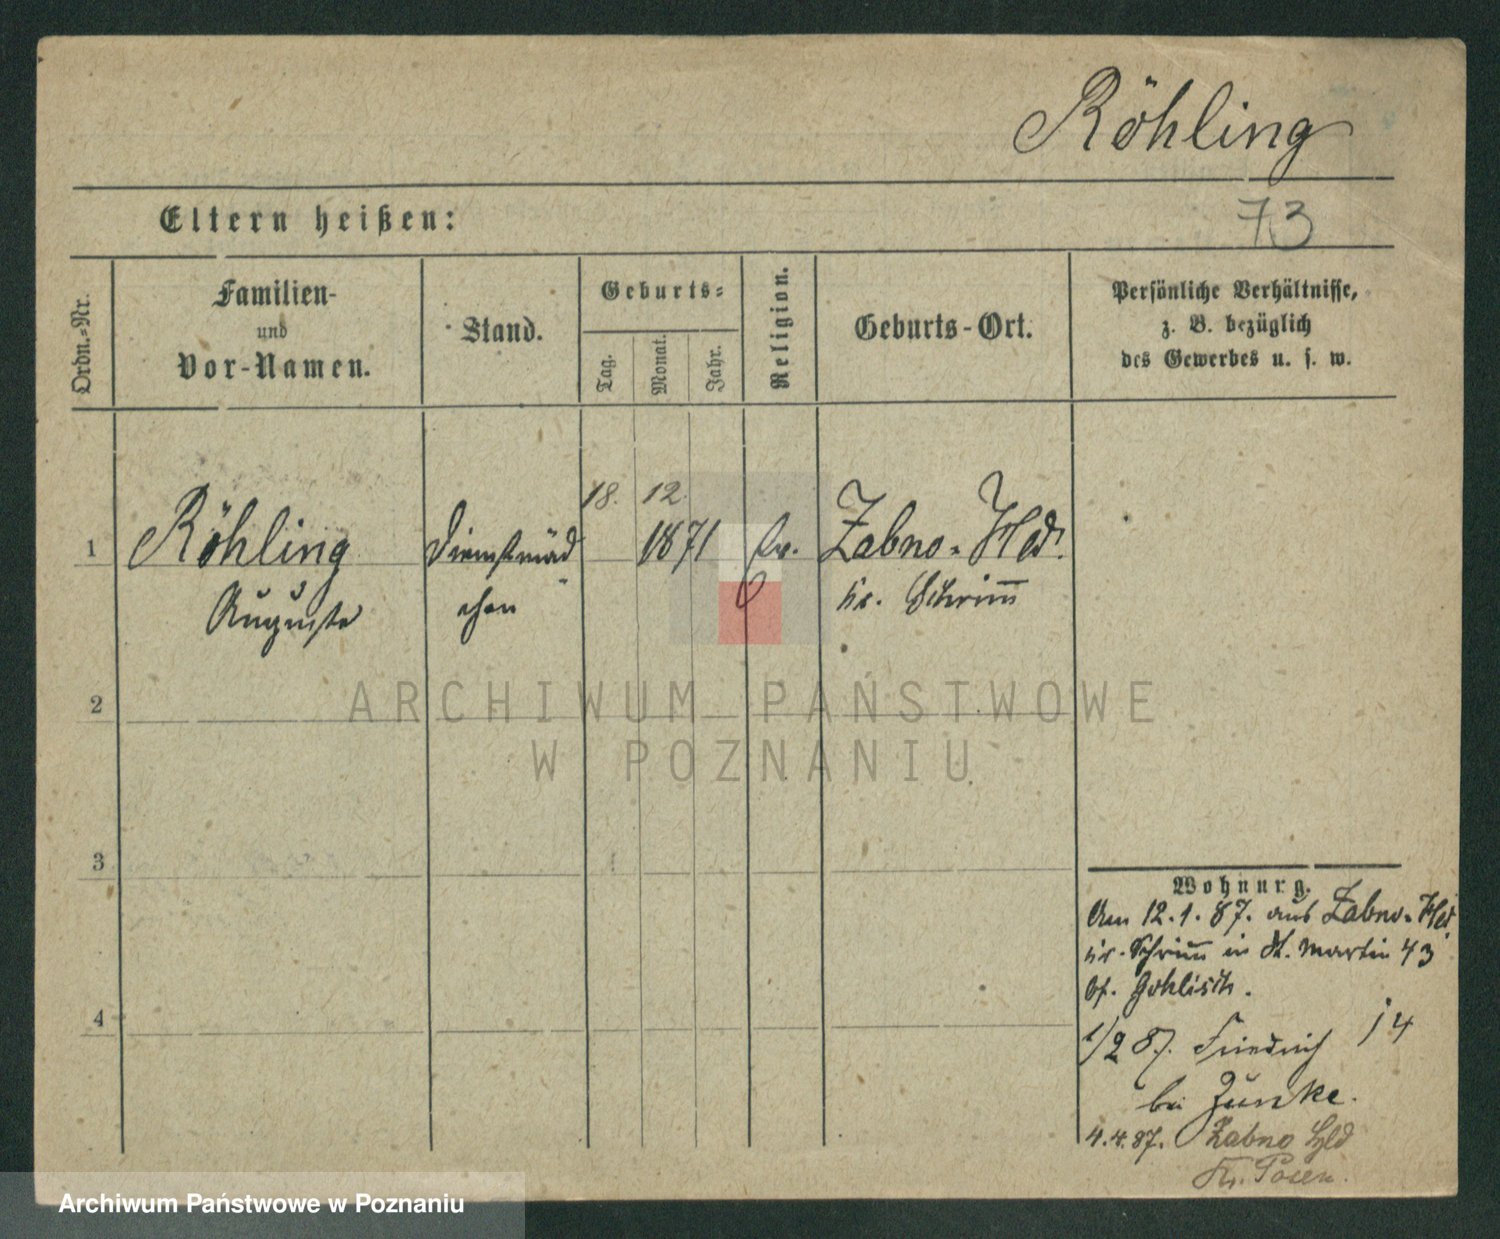 Röhling
Eltern heißen:
73
Ordn.-Nr.
Familien-
und
Vor-Namen.
Stand.
Geburts-
Tag.
Monat.
Jahr.
Religion.
Geburts-Ort.
Persönliche Verhältnisse,
z. B. bezüglich
des Gewerbes u. s. w.
18. 12
1 Röhling Dienstmäd 1871 Ev. Zabno-Hld.
Auguste chen Kr. Schrimm
ARCHIWUM PAŃSTWOWE
W POZNANIU
2
3
4
Wohnung.
Am 12.1.87. aus Zabno-Hld
Kr. Schrimm in St. Martin 43
bei Gohlisch.
1/2 87. Friedrich 14
bei Zunke.
4.4.87. Zabno Hld
Kr. Posen.
Archiwum Państwowe w Poznaniu